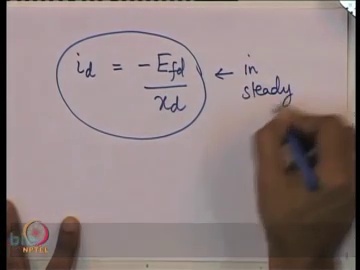 i_d = -E_fd / x_d ← in steady
NPTEL